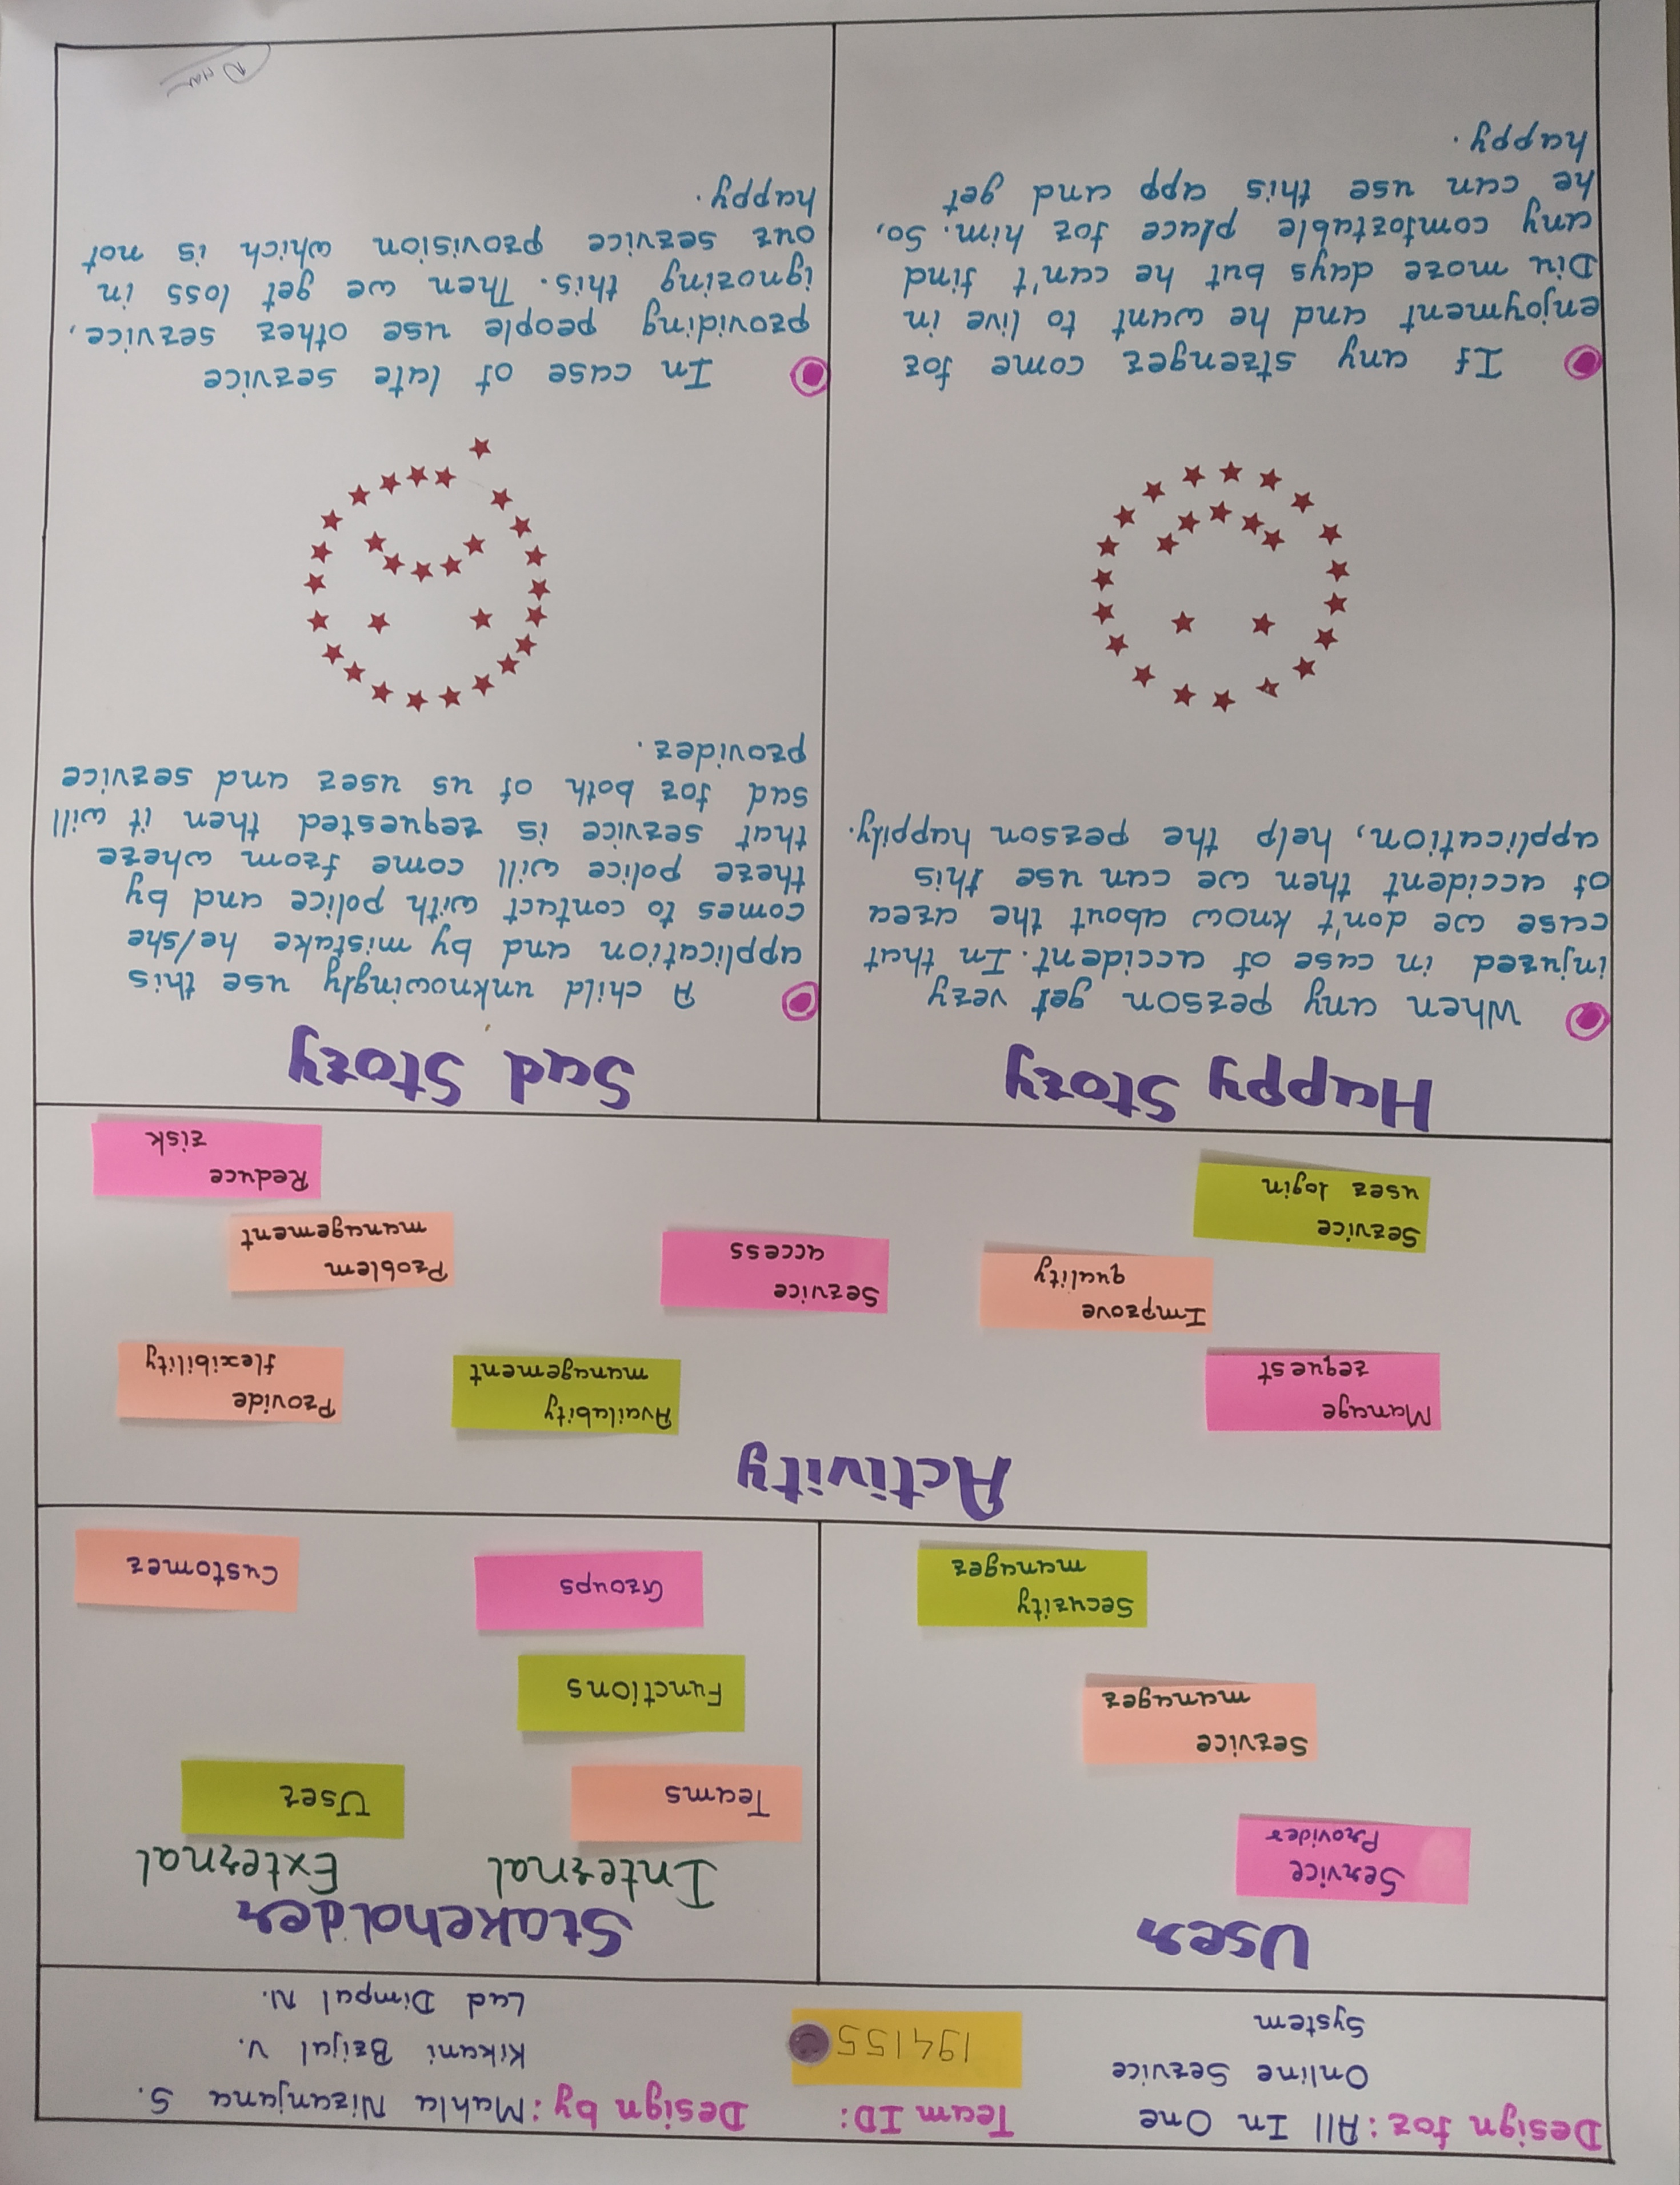 Design for: All In One
Online Service
System
Team ID:
194155
Design by: Mahla Niranjana S.
Kikani Brijal V.
Lad Dimpal N.
User
Service
Provider
Service
manager
Security
manager
Stakeholder
Internal
External
Teams
User
Functions
Groups
Customer
Activity
Manage
request
Availabity
management
Provide
flexibility
Improve
quality
Service
access
Problem
management
Service
user login
Reduce
risk
Happy Story
When any person get very
injured in case of accident. In that
case we don't know about the area
of accident then we can use this
application, help the person happily.
If any strenger come for
enjoyment and he want to live in
Diu more days but he can't find
any comfortable place for him. So,
he can use this app and get
happy.
Sad Story
A child unknowingly use this
application and by mistake he/she
comes to contact with police and by
there police will come from where
that service is requested then it will
sad for both of us user and service
provider.
In case of late service
providing people use other service,
ignoring this. Then we get loss in
our service provision which is not
happy.